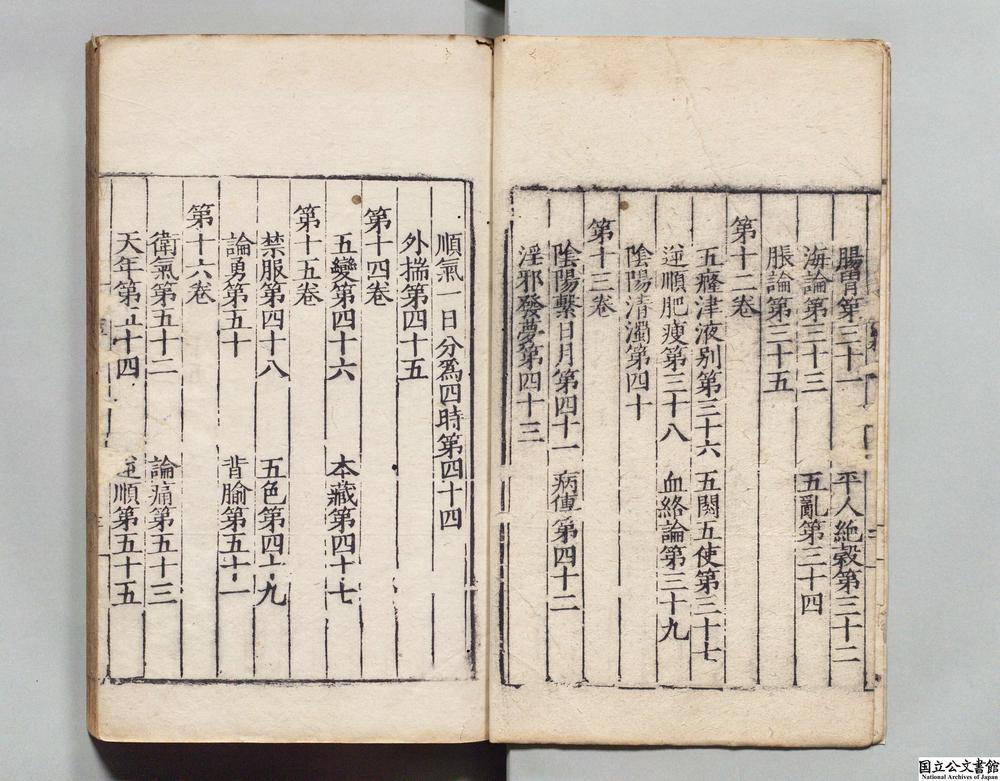 腸胃第三十一 平人絶穀第三十二
海論第三十三 五亂第三十四
脹論第三十五
第十二卷
五癃津液別第三十六 五閱五使第三十七
逆順肥瘦第三十八 血絡論第三十九
陰陽清濁第四十
第十三卷
陰陽繫日月第四十一 病傳第四十二
淫邪發夢第四十三
順氣一日分爲四時第四十四
外揣第四十五
第十四卷
五變第四十六 本藏第四十七
第十五卷
禁服第四十八 五色第四十九
論勇第五十 背腧第五十一
第十六卷
衛氣第五十二 論痛第五十三
天年第五十四 逆順第五十五
国立公文書館
National Archives of Japan